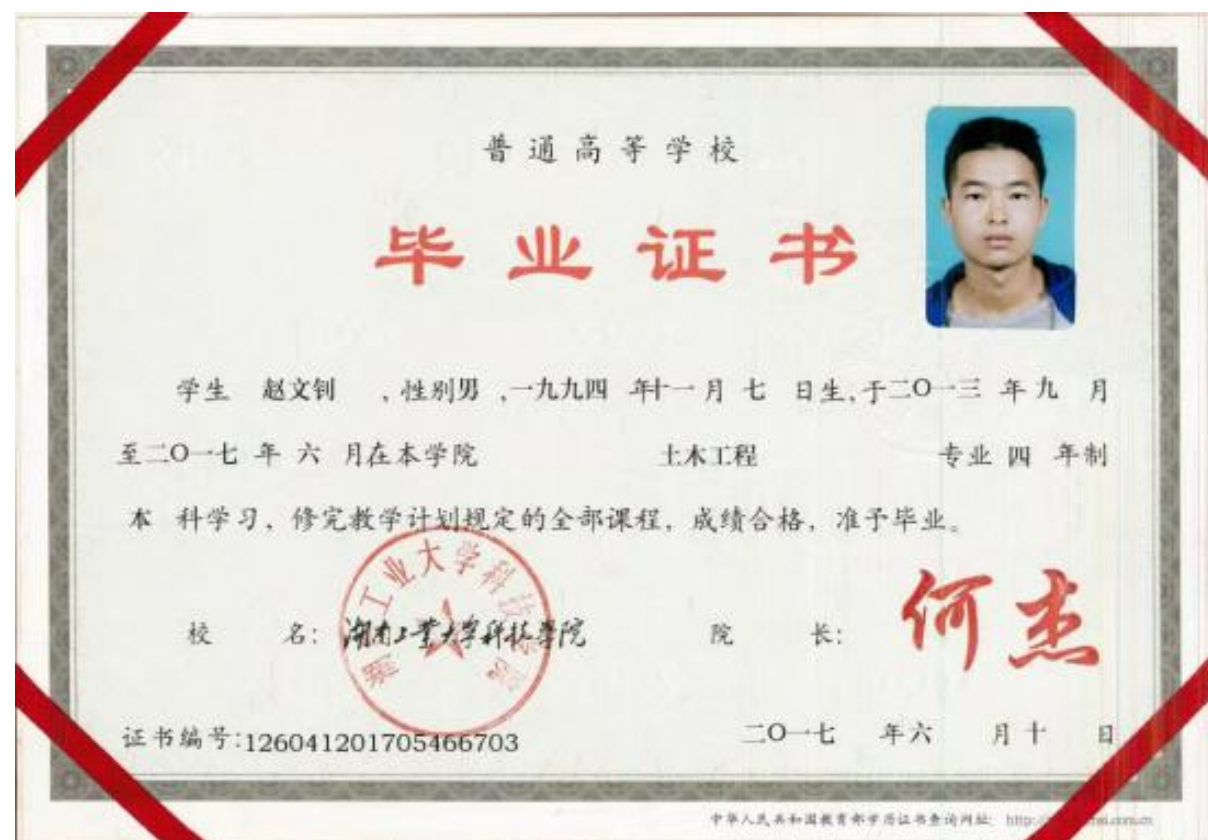 普通高等学校
毕业证书
学生 赵文钊 ,性别男 ,一九九四 年十一月 七 日生,于二〇一三 年九 月
至二〇一七 年 六 月在本学院 土木工程 专业 四 年制
本 科学习,修完教学计划规定的全部课程,成绩合格,准予毕业。
校 名: 湖南工业大学科技学院 院 长: 何杰
湖南工业大学科技学院
证书编号:126041201705466703 二〇一七 年六 月十 日
中华人民共和国教育部学历证书查询网址: http: